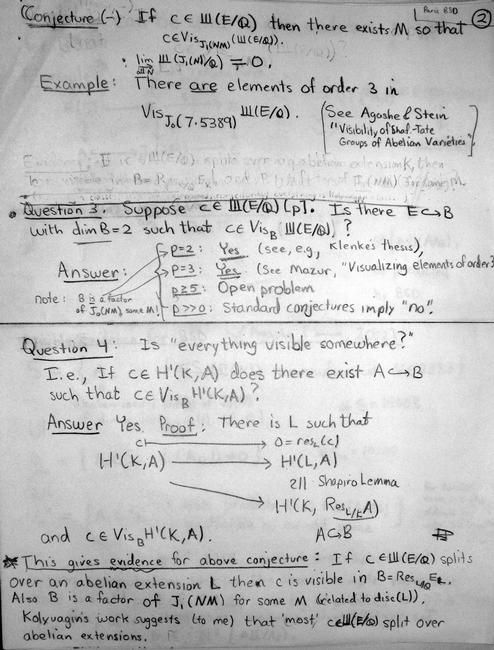 Paris BSD
②
Conjecture (-) If c∈Ш(E/Q) then there exists M so that
c∈Vis_{J₁(NM)}(Ш(E/Q)).
∴ lim Ш(J₁(N)/Q) ?= 0.
Example: There are elements of order 3 in
Vis_{J₀(7·5389)} Ш(E/Q).
[See Agashe & Stein
"Visibility of Shaf.-Tate
Groups of Abelian Varieties"]
• Question 3. Suppose c∈Ш(E/Q)[p]. Is there E↪B
with dim B=2 such that c∈Vis_B Ш(E/Q)?
Answer:
p=2: Yes (see, e.g., Klenke's thesis),
p=3: Yes (See Mazur, "Visualizing elements of order 3
p≥5: Open problem
p>>0: Standard conjectures imply "no".
note: B is a factor
of J₀(NM), some M
Question 4: Is "everything visible somewhere?"
I.e., If c∈H¹(K,A) does there exist A↪B
such that c∈Vis_B H¹(K,A)?
Answer Yes. Proof: There is L such that
c ↦ 0=res_L(c)
H¹(K,A) → H¹(L,A)
≀|| Shapiro Lemma
H¹(K, Res_{L/K}A)
and c∈Vis_B H¹(K,A).
A↪B
* This gives evidence for above conjecture: If c∈Ш(E/Q) splits
over an abelian extension L then c is visible in B=Res_{L/Q}E_L.
Also B is a factor of J₁(NM) for some M (related to disc(L)).
Kolyvagin's work suggests (to me) that 'most' c∈Ш(E/Q) split over
abelian extensions.